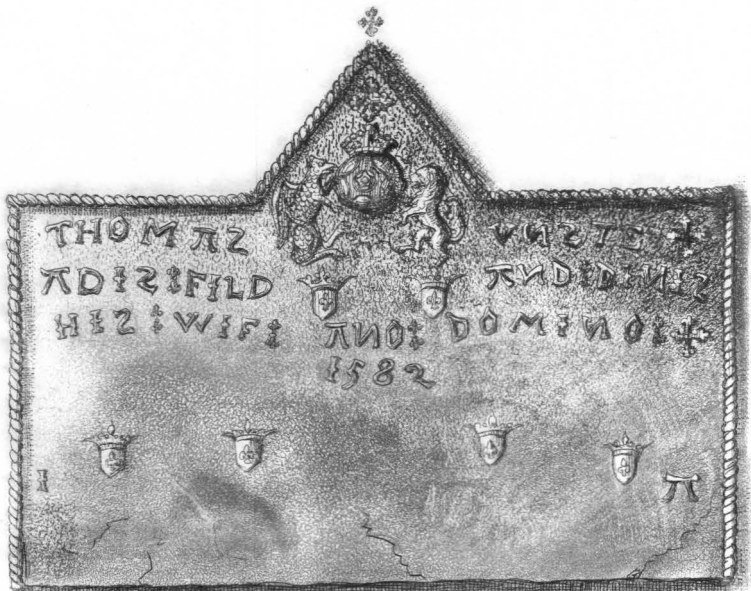 THOMAS VNSTE +
ADISIFILD AND⁝DINIS
HIS⁝WIF⁝ ANO⁝ DOMINO⁝ +
1582
I A